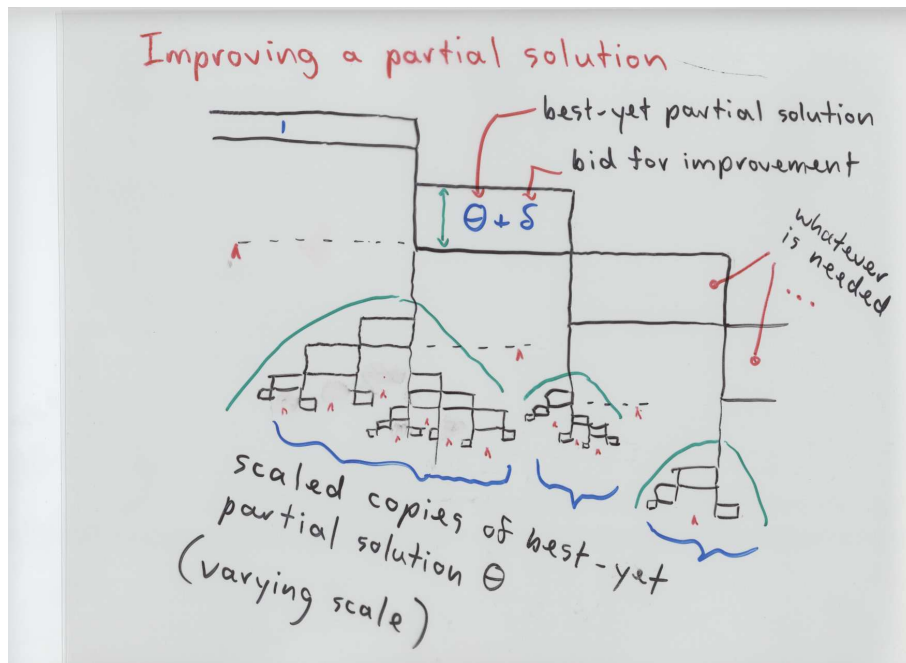 Improving a partial solution
best-yet partial solution
1
bid for improvement
θ + δ
whatever
is needed
...
scaled copies of best-yet
partial solution θ
(varying scale)